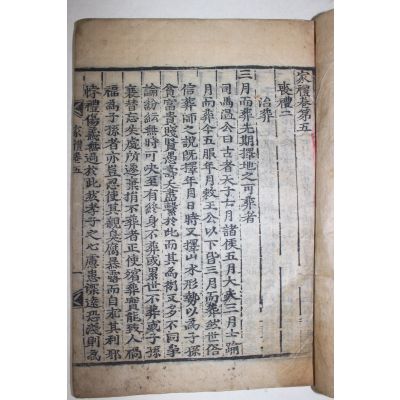 家禮卷第五
喪禮二
治葬
三月而葬先期擇地之可葬者
司馬溫公曰古者天子七月諸侯五月大夫三月士踰
月而葬今五服年月敕王公以下皆三月而葬然世俗
信葬師之說旣擇年月日時又擇山水形勢以爲子孫
貧富貴賤賢愚壽夭盡繫於此而其爲術又多不同爭
論紛紜無時可決至有終身不葬或累世不葬或子孫
衰替忘失處所遂棄捐不葬者正使殯葬實能致人禍
福爲子孫者亦豈忍使其親臭腐暴露而自求其利耶
悖禮傷義無過於此然孝子之心慮患深遠恐淺則爲
家禮卷五